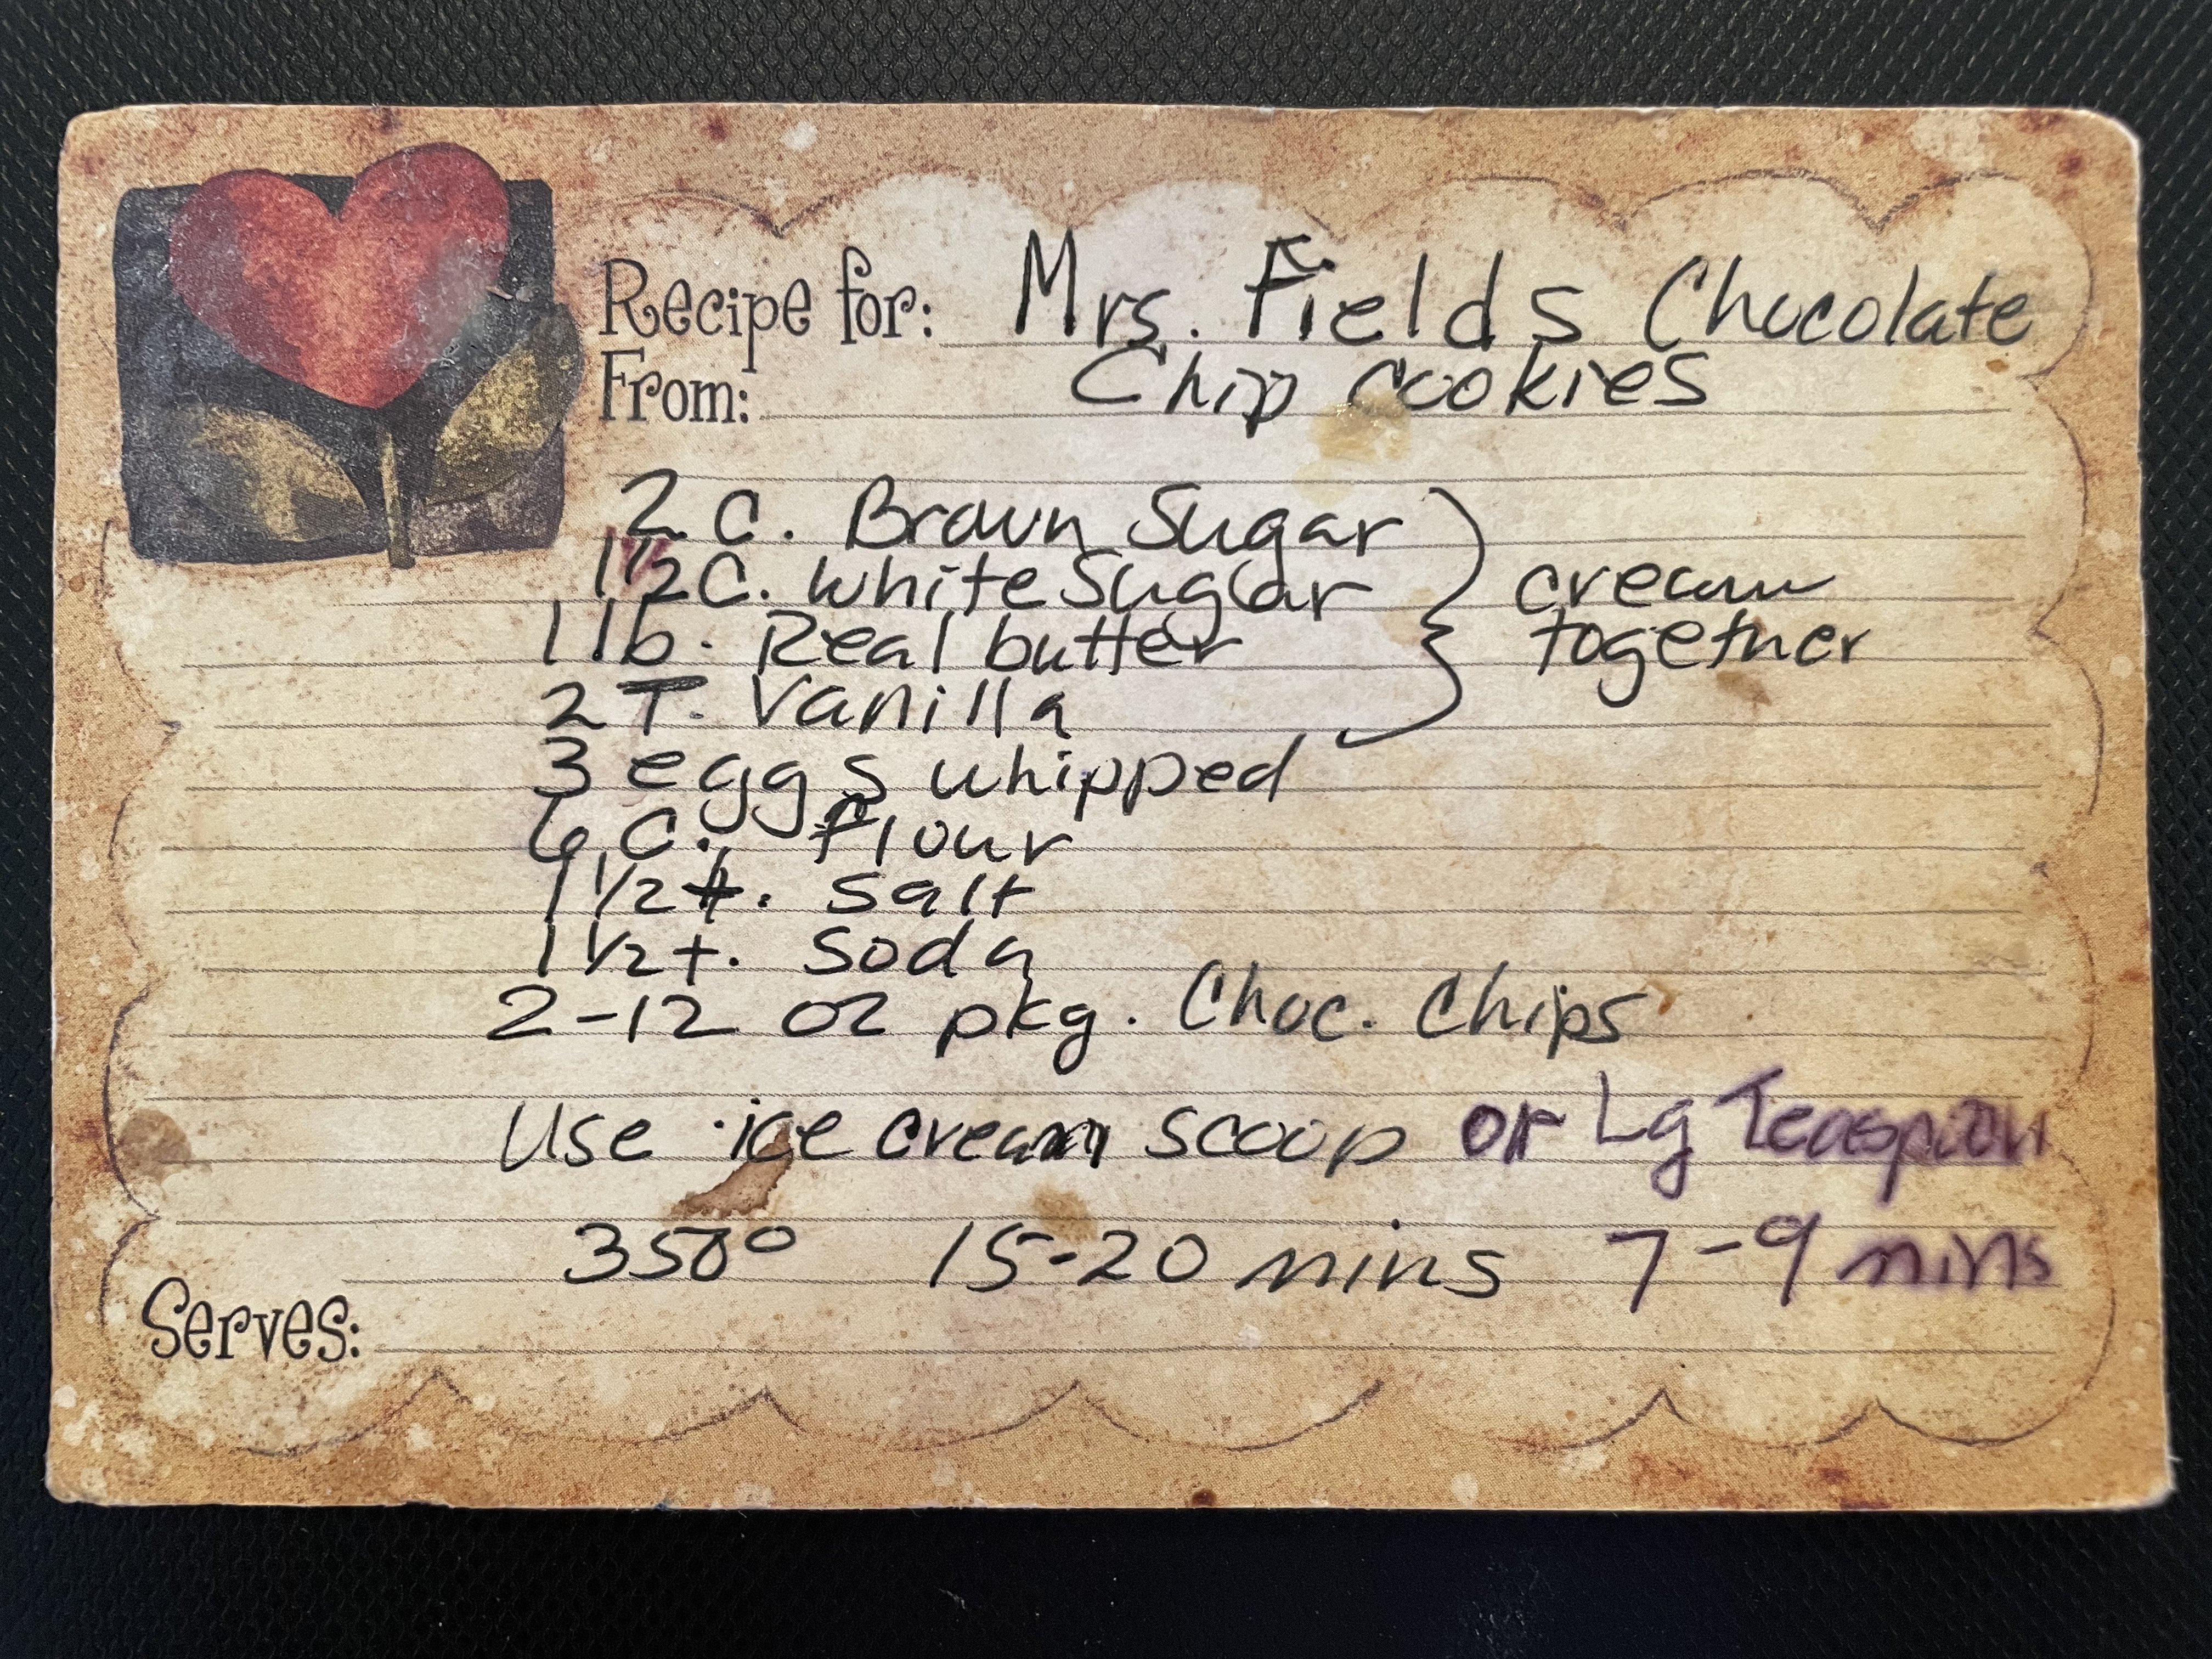 Recipe for: Mrs. Fields Chocolate
From: Chip cookies
2 C. Brown Sugar
1 1/2 C. white Sugar
1 lb. Real butter
2 T. Vanilla
cream
together
3 eggs whipped
6 C. flour
1 1/2 t. salt
1 1/2 t. soda
2-12 oz pkg. Choc. Chips
Use ice cream scoop or Lg Teaspoon
350° 15-20 mins 7-9 mins
Serves: